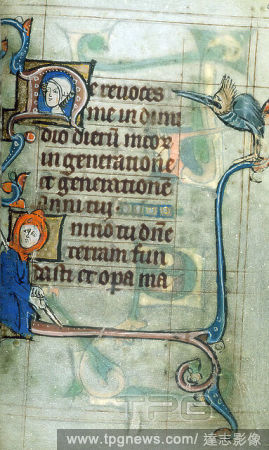 e reuoces
me in dimi
dio dierū meoꝝ
in generatione
et generatione
anni tui
nitio tu dn̄e
terram fun
dasti et opa ma
TPG
www.tpgnews.com/ 達志影像